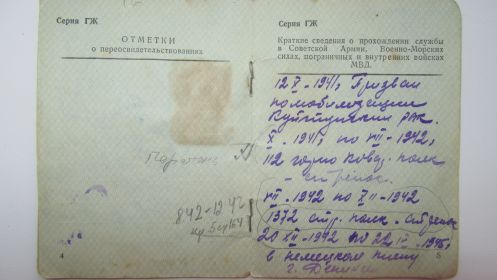 Серия ГЖ
ОТМЕТКИ
о переосвидетельствованиях
842-1242
4
Серия ГЖ
Краткие сведения о прохождении службы
в Советской Армии, Военно-Морских
силах, пограничных и внутренних войсках
МВД.
12 X-1941, Призван
по мобилизации
Куйтунским РВК.
X. 1941, по VII-1942,
112 горно кавал. полк
- стрелок.
VII. 1942 по XII-1942
1372 стр. полк. стрелок
20 XII-1942 по 22 1945,
в немецком плену
г.
5